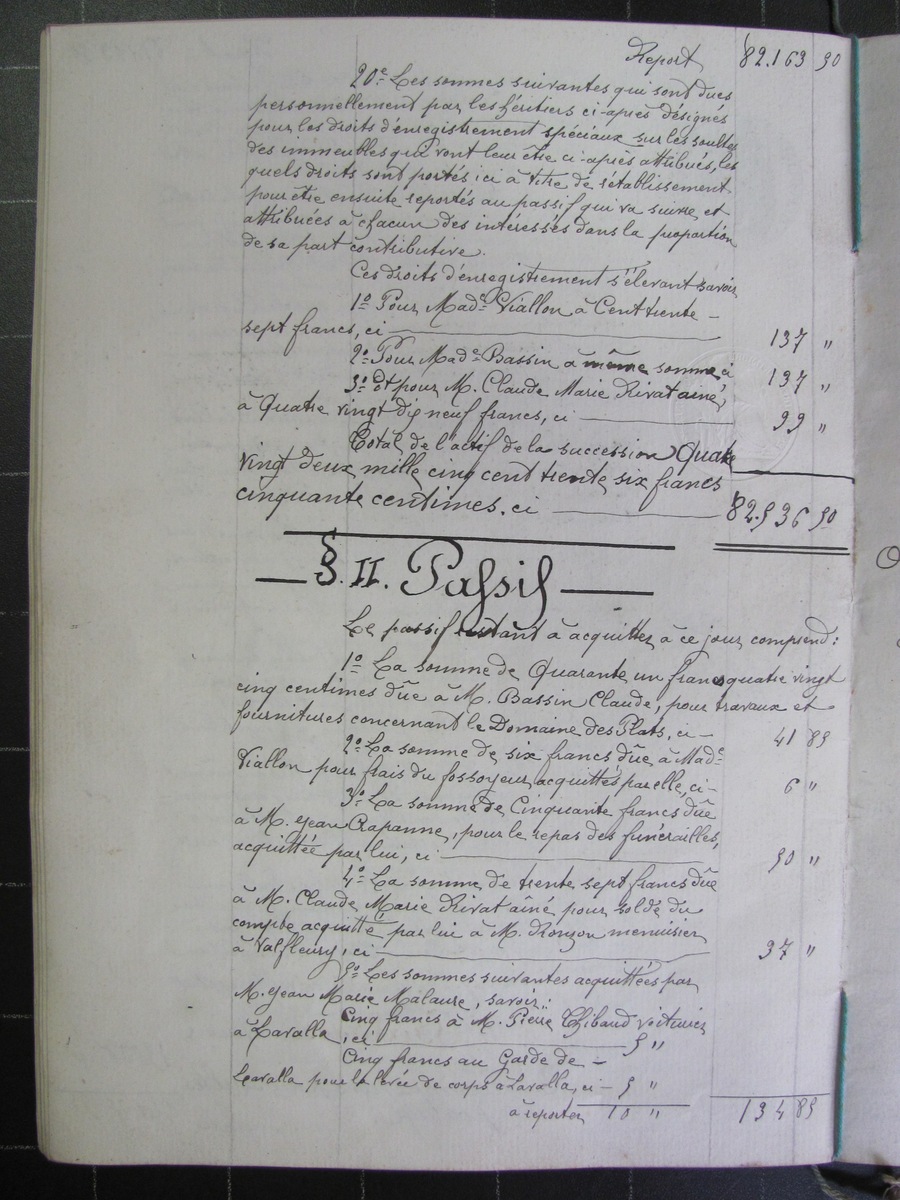 Report 82.163 50
20e Les sommes suivantes qui sont dues
personnellement par les héritiers ci-après désignés
pour les droits d'enregistrement spéciaux sur les soultes
des immeubles qui vont leur être ci-après attribués, les
quels droits sont portés ici à titre de rétablissement
pour être ensuite reportés au passif qui va suivre et
attribuées à chacun des intéressés dans la proportion
de sa part contributive.
Ces droits d'enregistrement s'élevant savoir
1o Pour Made Viallon à Cent trente
sept francs, ci 137 "
2o Pour Made Bassin à même somme ci 137 "
3o Et pour M. Claude Marie Rivat aîné,
à Quatre vingt dix neuf francs, ci 99 "
Total de l'actif de la succession Quatre
vingt deux mille cinq cent trente six francs
cinquante centimes. ci 82.536 50
§. II. Passif
Le passif restant à acquitter à ce jour comprend :
1o La somme de Quarante un francs quatre vingt
cinq centimes dûe à M. Bassin Claude, pour travaux et
fournitures concernant le Domaine des Plats, ci - 41 85
2o La somme de six francs dûe à Made
Viallon pour frais du fossoyeur acquittés par elle, ci - 6 "
3o La somme de Cinquante francs dûe
à M. Jean Crapanne, pour le repas des funérailles,
acquittée par lui, ci 50 "
4o La somme de trente sept francs dûe
à M. Claude Marie Rivat aîné pour solde du
compte acquitté par lui à M. Ronzon menuisier
à Valfleury, ci 37 "
5o Les sommes suivantes acquittées par
M. Jean Marie Malaure, savoir :
Cinq francs à M. Pierre Thibaud voiturier
à Lavalla, ci 5 "
Cinq francs au Garde de -
Lavalla pour la levée de corps à Lavalla, ci - 5 "
à reporter 10 " 134 85